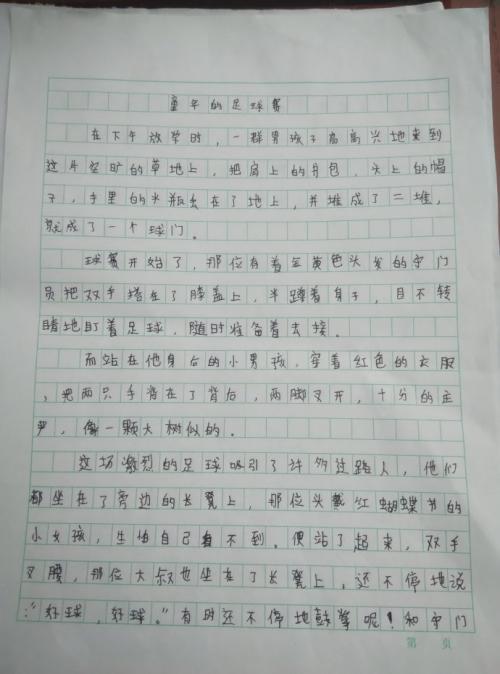 童年的足球赛
在下午放学时，一群男孩子高高兴兴地来到
这片空旷的草地上，把肩上的书包、头上的帽
子，手里的水瓶丢在了地上，并堆成了二堆，
就成了一个球门。
球赛开始了，那位有着金黄色头发的守门
员把双手搭在了膝盖上，半蹲着身子，目不转
睛地盯着足球，随时准备着去接。
而站在他身后的小男孩，穿着红色的衣服
、把两只手背在了背后，两脚叉开，十分的庄
严，像一颗大树似的。
这场激烈的足球吸引了许多过路人，他们
都坐在了旁边的长凳上，那位头戴红蝴蝶节的
小女孩，生怕自己看不到。便站了起来，双手
叉腰，那位大叔也坐在了长凳上，还不停地说
：“好球，好球。”有时还不停地鼓掌呢！和守门
第 页